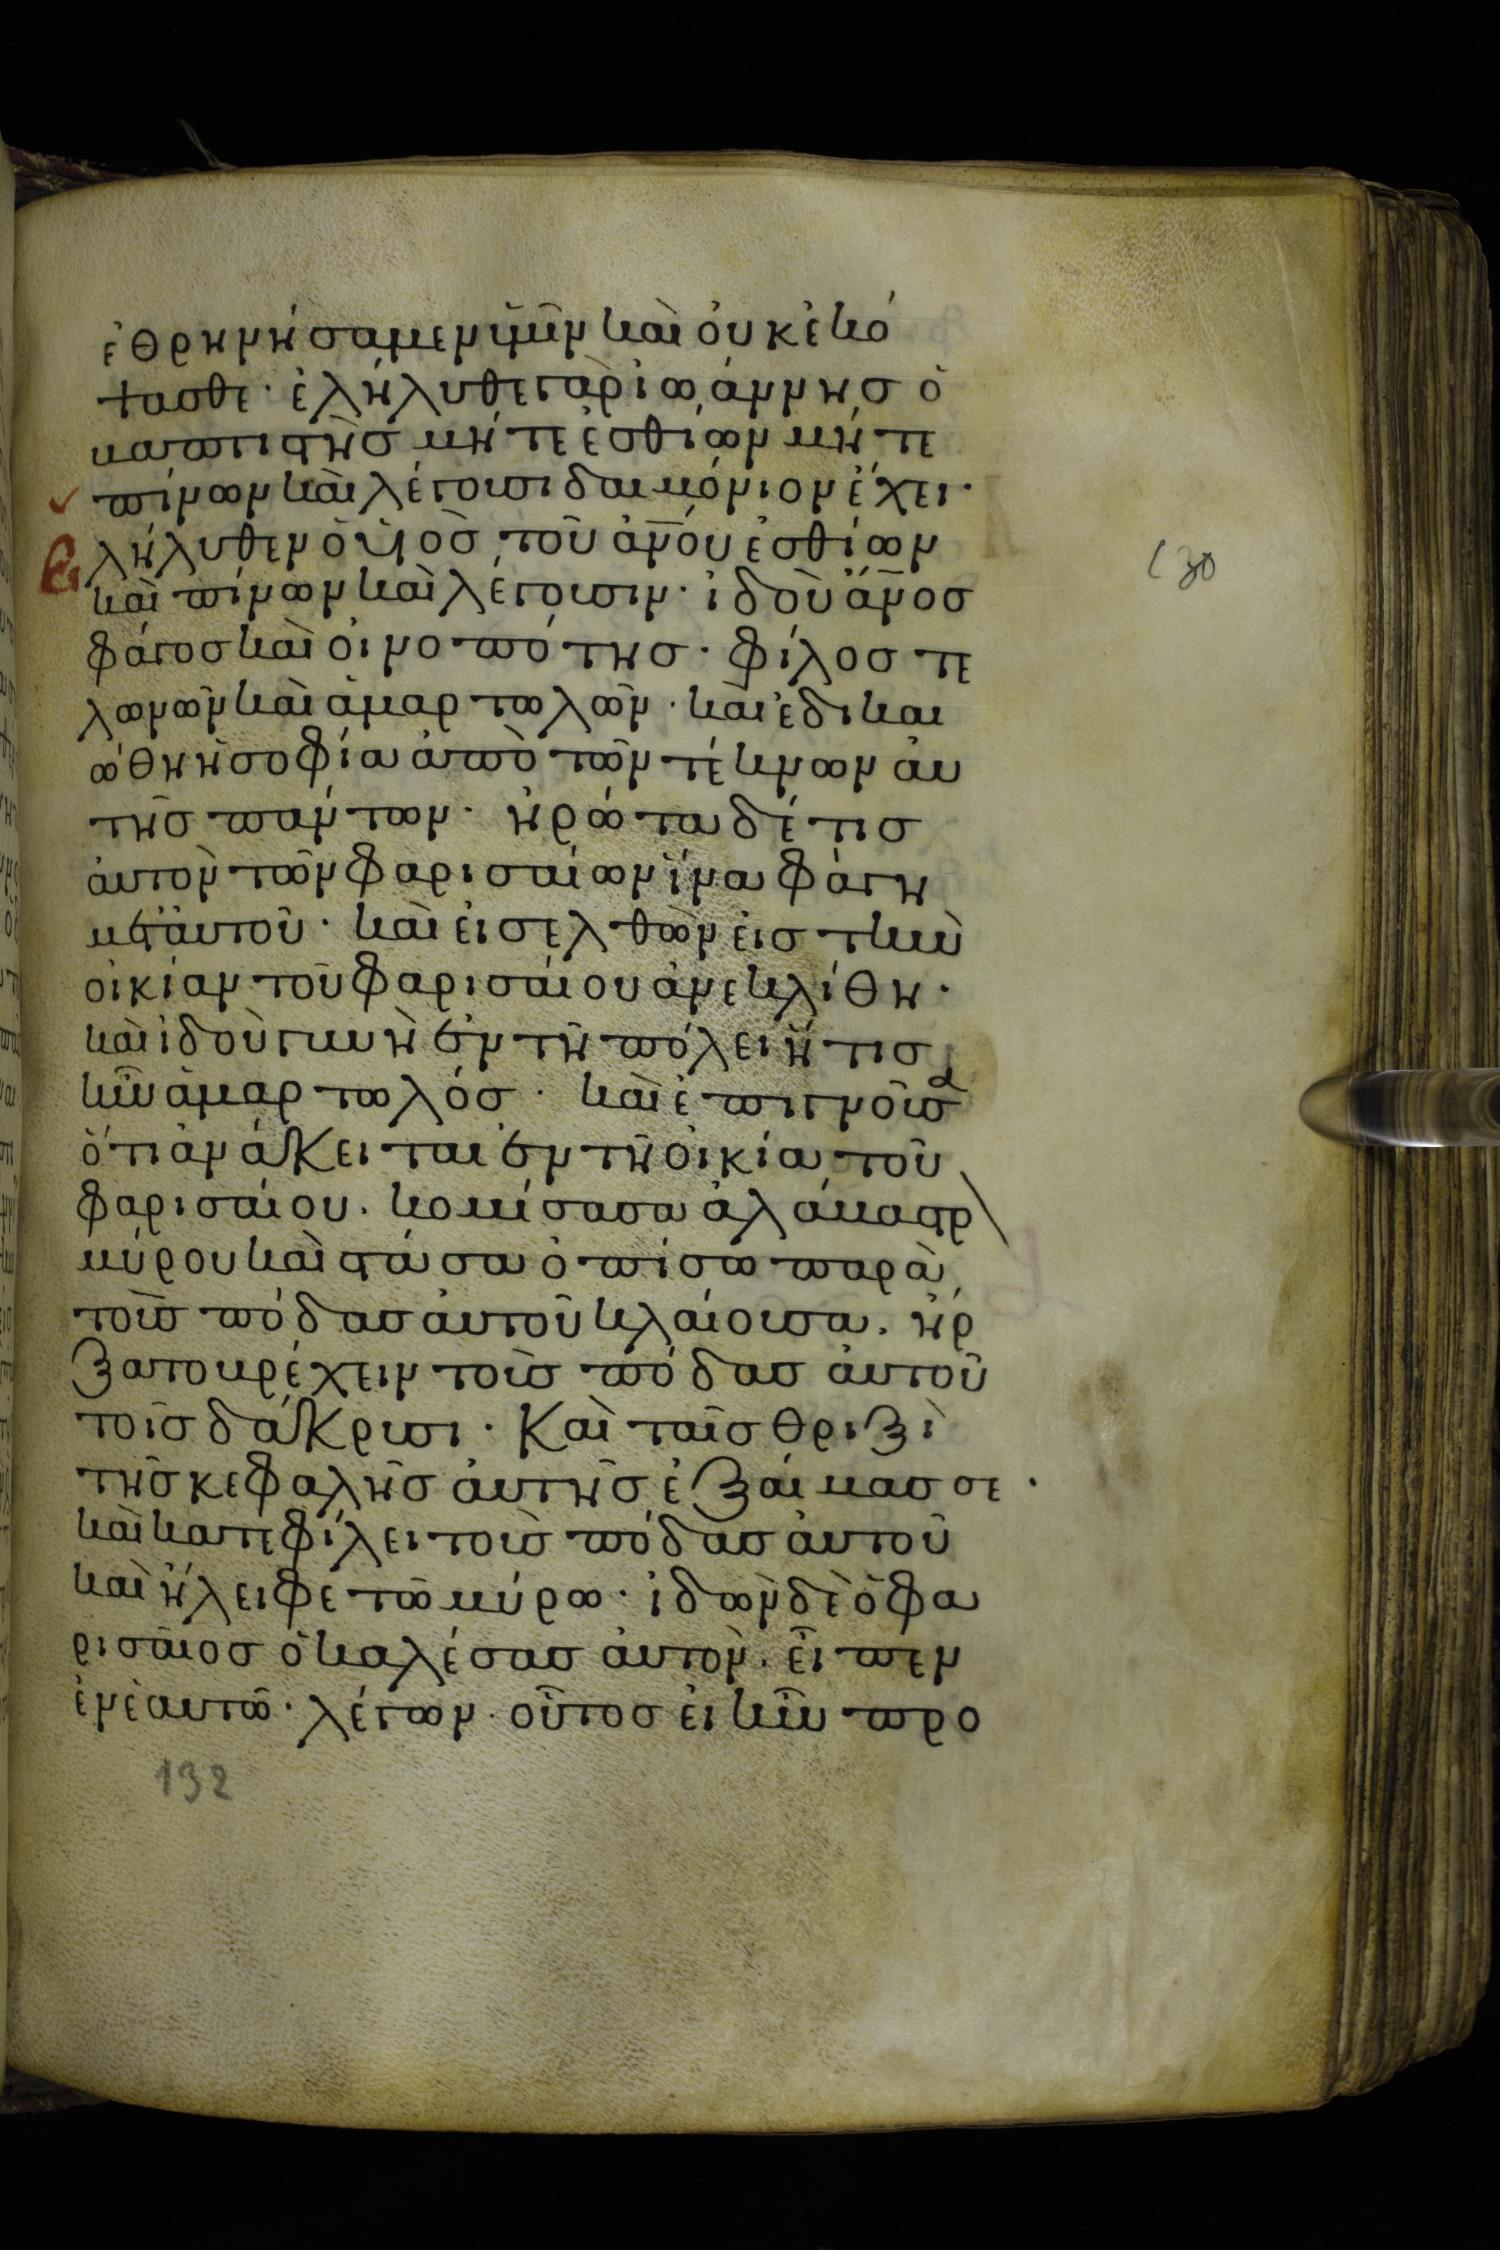 ἐθρηνήσαμεν ὑμῖν καὶ οὐκ ἐκό
ψασθε· ἐλήλυθε γὰρ ἰωάννης ὁ
βαπτιστὴς μήτε ἐσθίων μήτε
πίνων καὶ λέγουσι δαιμόνιον ἔχει·
Ἐλήλυθεν ὁ ὑιὸς τοῦ ἀν̅ου ἐσθίων
καὶ πίνων καὶ λέγουσιν· ἰδοὺ ἄν̅ος
φάγος καὶ οἰνοπότης· φίλος τε
λωνῶν καὶ ἁμαρτωλῶν· καὶ ἐδικαι
ώθη ἡ σοφία ἀπὸ τῶν τέκνων ἀυ
τῆς πάντων· ἠρώτα δέ τις
ἀυτὸν τῶν φαρισαίων ἵνα φάγη
μετ' ἀυτοῦ· καὶ εἰσελθὼν εἰς τὴν
οἰκίαν τοῦ φαρισαίου ἀνεκλίθη·
καὶ ἰδοὺ γυνὴ ἐν τῆ πόλει ἥτις
ἦν ἁμαρτωλός· καὶ ἐπιγνοῦσα
ὅτι ἀνάκειται ἐν τῆ οἰκία τοῦ
φαρισαίου. κομίσασα ἀλάβαστρ
μύρου καὶ στάσα ὀπίσω παρὰ
τοὺς πόδας ἀυτοῦ κλαίουσα. ἤρ
ξατο βρέχειν τοὺς πόδας ἀυτοῦ
τοῖς δάκρυσι· Καὶ ταῖς θριξὶ
τῆς κεφαλῆς ἀυτῆς ἐξαίμασσε·
καὶ κατεφίλει τοὺς πόδας ἀυτοῦ
καὶ ἤλειφε τῶ μύρω· ἰδὼν δὲ ὁ φα
ρισαῖος ὁ καλέσας ἀυτὸν. εἶπεν
ἐν ἑαυτῶ· λέγων· οὗτος εἰ ἦν προ
130
132